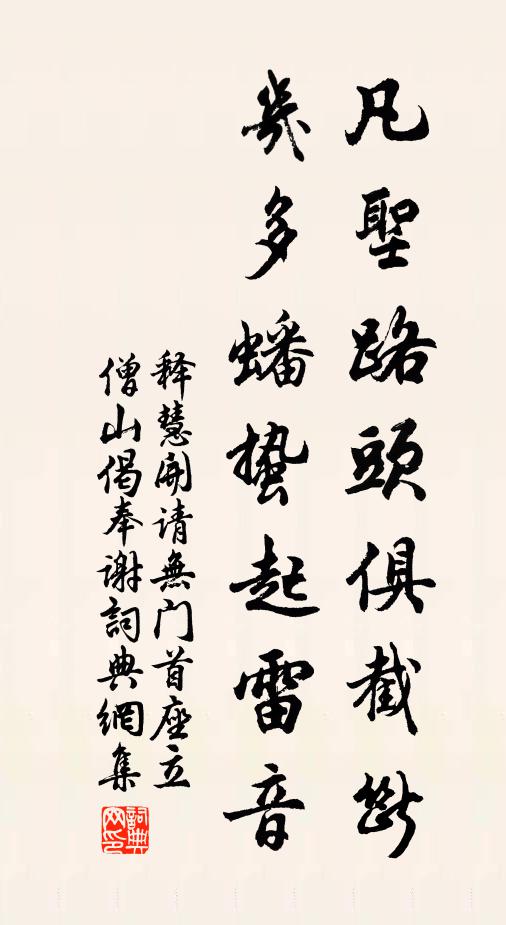 凡聖路頭俱截斷
幾多蟠蟄起雷音
释慧開请無门首座立
僧山偈奉谢詞典網集
詞典
网印